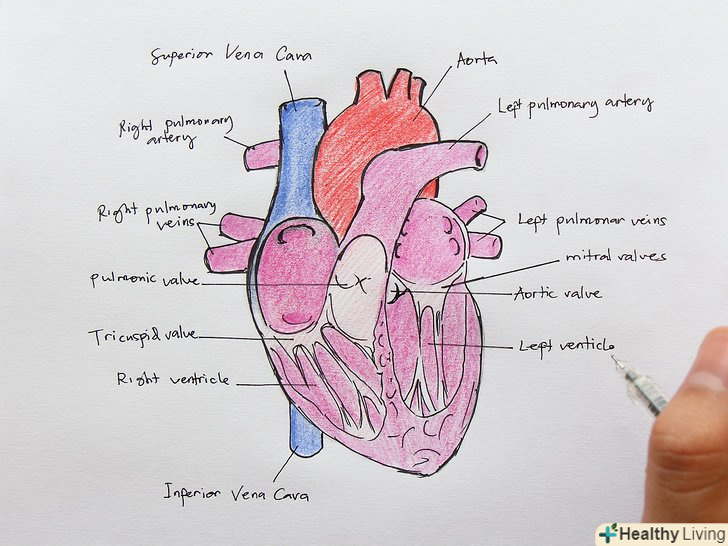 Superior Vena Cava
Aorta
Left pulmonary artery
Right pulmonary
artery
Right pulmonary
veins
Left pulmonar veins
mitral valves
pulmonic valve
Aortic valve
Tricuspid valve
Left venticle
Right ventricle
Inferior Vena Cava
Healthy Living